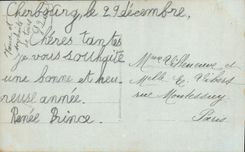 Cherbourg, le 29 décembre,
Chères tantes
je vous souhaite
une bonne et heu-
reuse année.
Renée Prince.
Mme Villeneuve et
Melle C. Vibert
rue Montessuy
Paris